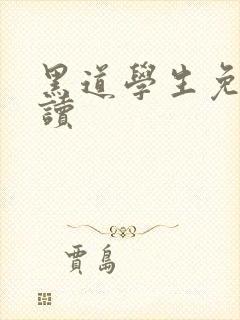 黑道學生免
讀
賈島